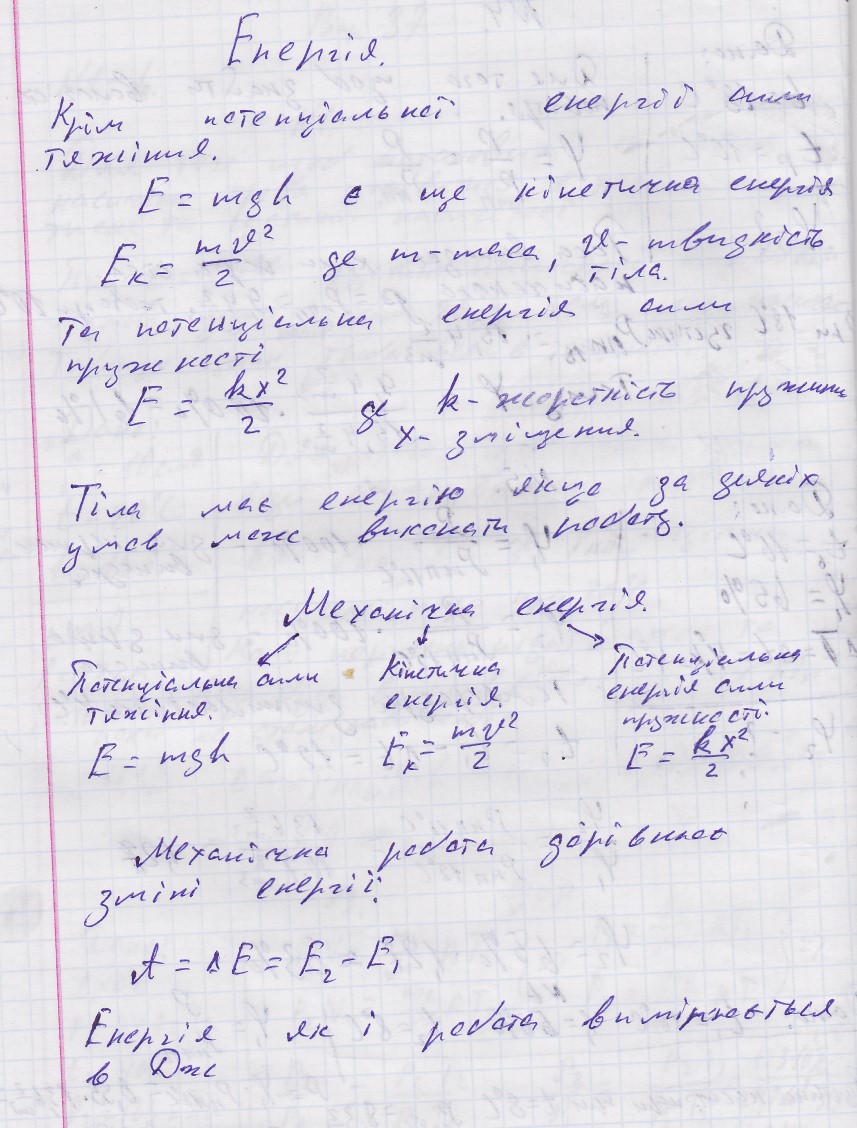 Енергія.
Крім потенціальної енергії сили
тяжіння.
E = mgh є ще кінетична енергія
Eк = mv²/2 де m-маса, v- швидкість
тіла.
Та потенціальна енергія сили
пружності
E = kx²/2 де k- жорсткість пружини
x- зміщення.
Тіла має енергію якщо за деяких
умов може виконати роботу.
Механічна енергія.
Потенціальна сили тяжіння.
E = mgh
Кінетична енергія.
Eк = mv²/2
Потенціальна енергія сили пружності.
E = kx²/2
Механічна робота дорівнює
зміні енергії.
A = ΔE = E₂ - E₁
Енергія як і робота вимірюється
в Дж